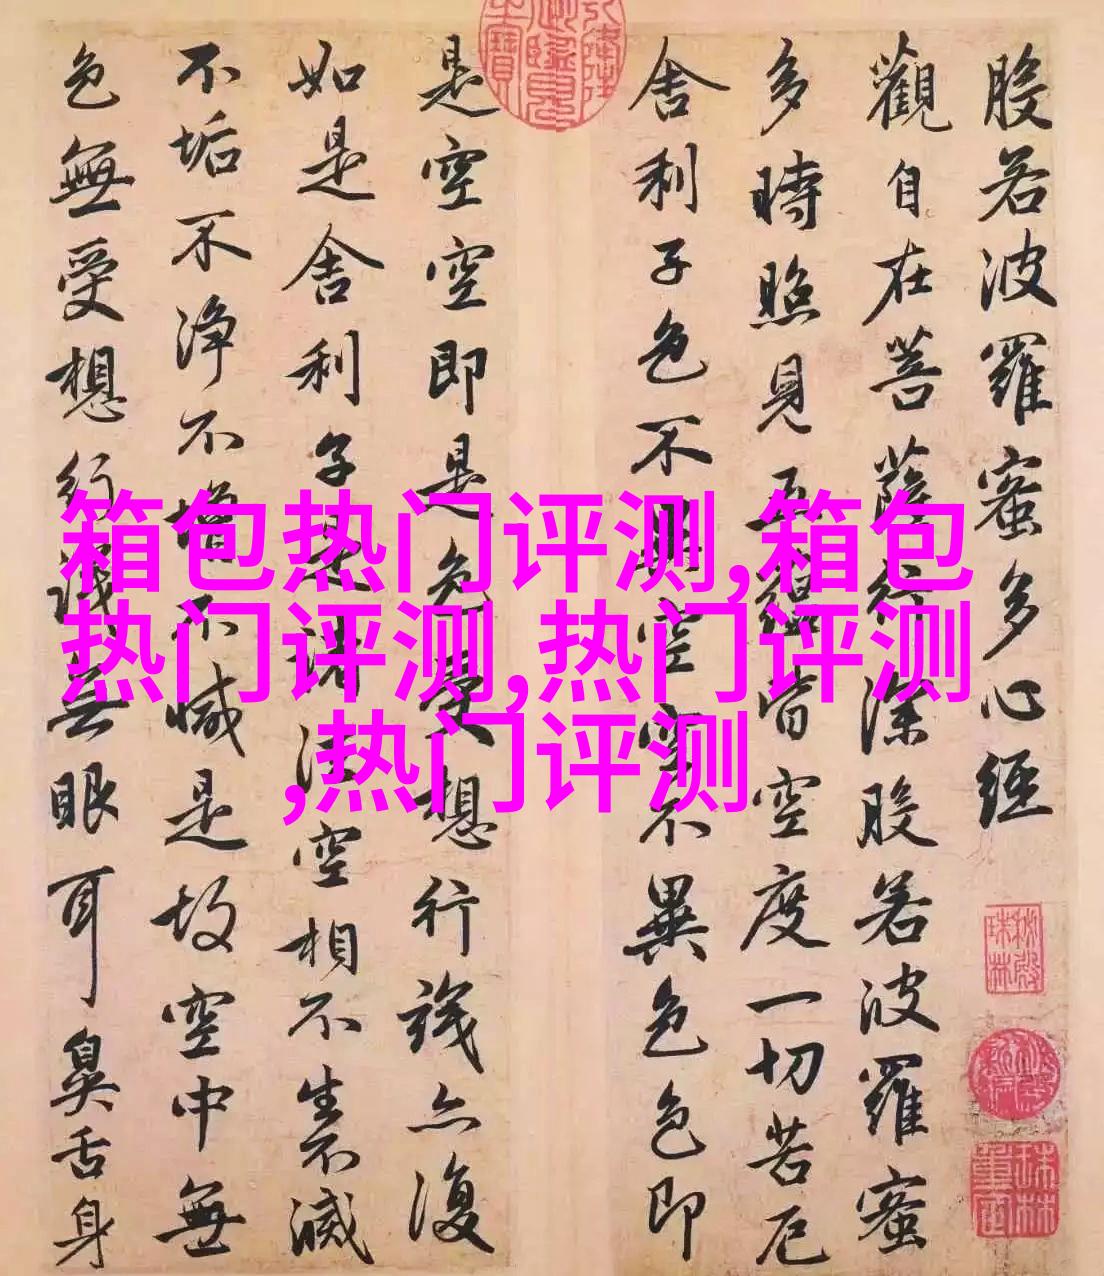 般若波羅蜜多心經
觀自在菩薩行深般若波羅蜜
多時照見五蘊皆空度一切苦厄
舍利子色不異空空不異色色即
是空空即是色受想行識亦復
如是舍利子是諸法空相不生不滅
不垢不净不增不減是故空中無
色無受想行識无眼耳鼻舌身
秘殿
珠林
箱包热门评测,箱包
热门评测,热门评测
,热门评测